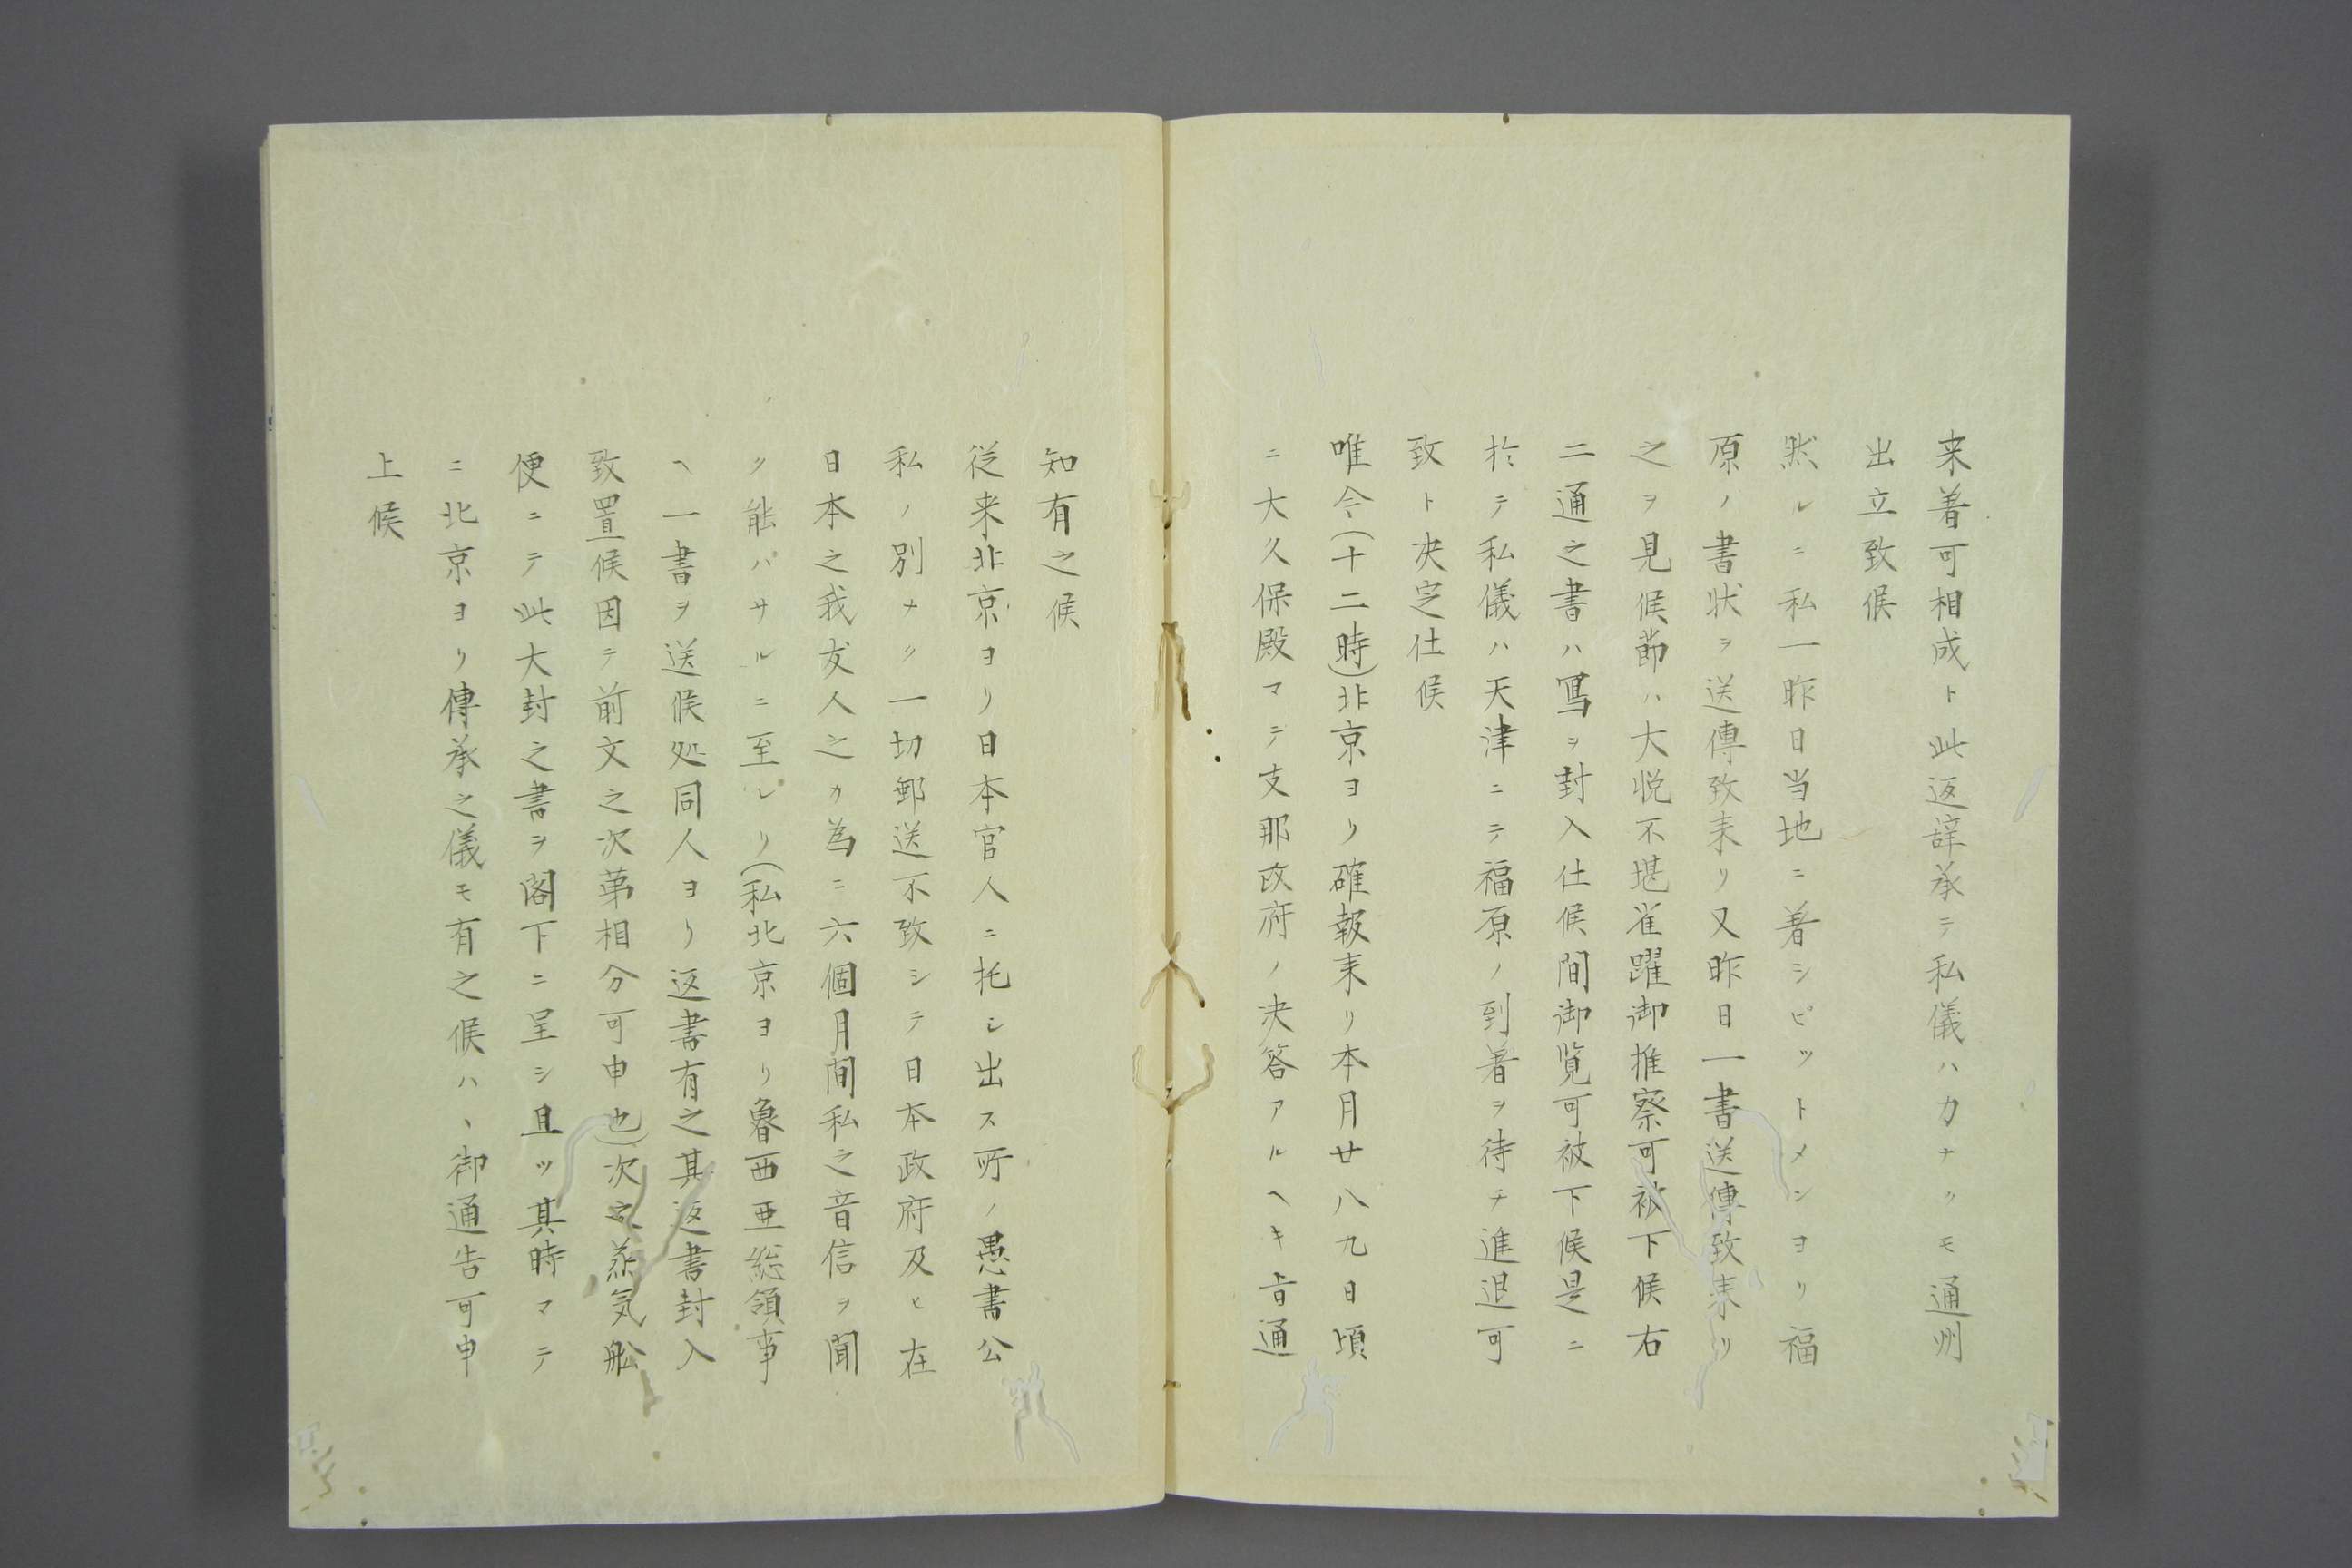 来着可相成ト此返辞承テ私儀ハカナクモ通州
出立致候
然ルニ私一昨日当地ニ着シピットメンヨリ福
原ノ書状ヲ送傳致来リ又昨日一書送傳致来リ
之ヲ見候節ハ大悦不堪雀躍御推察可被下候右
二通之書ハ写ヲ封入仕候間御覧可被下候是ニ
於テ私儀ハ天津ニテ福原ノ到着ヲ待チ進退可
致ト决定仕候
唯今(十二時)北京ヨリ確報来リ本月廿八九日頃
ニ大久保殿マテ支那政府ノ决答アルヘキ旨通
知有之候
従来北京ヨリ日本官人ニ托シ出ス所ノ愚書公
私ノ別ナク一切郵送不致シテ日本政府及ヒ在
日本之我友人之カ為ニ六個月間私之音信ヲ聞
ク能ハサルニ至レリ(私北京ヨリ魯西亜総領事
ヘ一書ヲ送候処同人ヨリ返書有之其返書封入
致置候因テ前文之次第相分可申也)次之蒸気舩
便ニテ此大封之書ヲ閣下ニ呈シ且ツ其時マテ
ニ北京ヨリ傳承之儀モ有之候ハヽ御通告可申
上候